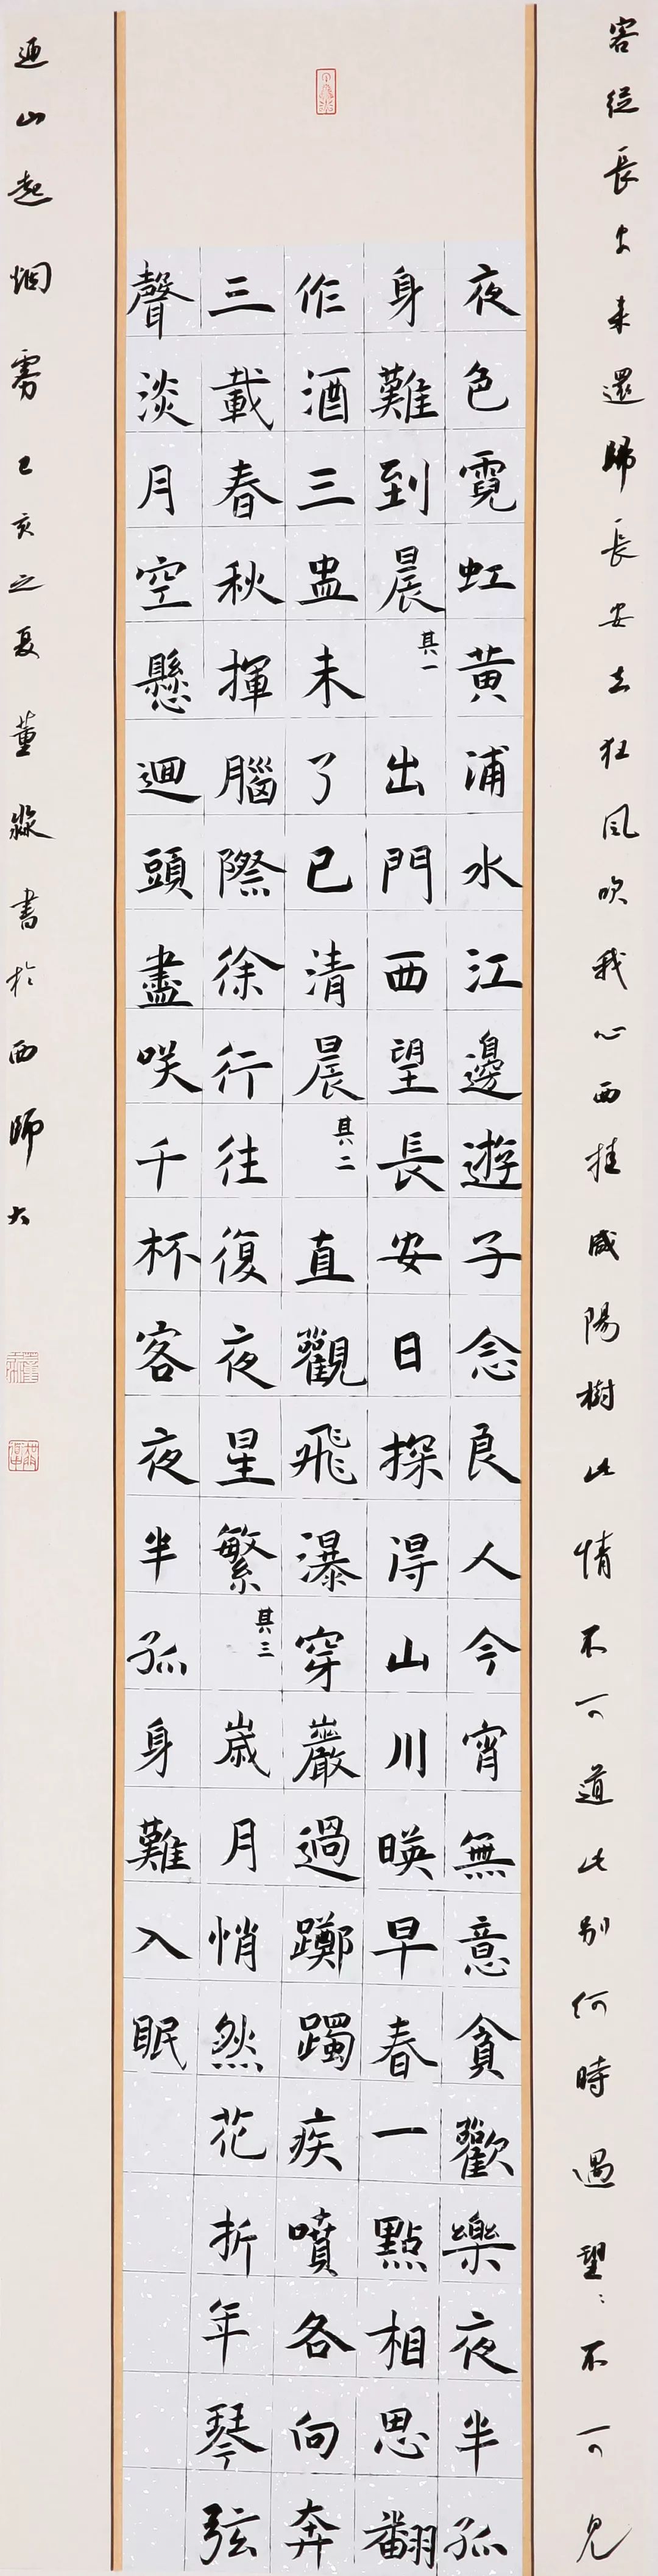 客從長安來還歸長安去狂風吹我心西挂咸陽樹此情不可道此別何時遇望〻不可見
夜色霓虹黄浦水江邊遊子念良人今宵無意貪歡樂夜半孤
身難到晨其一出門西望長安日探得山川暎早春一點相思翻
作酒三盅未了已清晨其二直觀飛瀑穿巖過躑躅疾噴各向奔
三載春秋揮腦際徐行往復夜星繁其三歲月悄然花折年琴弦
聲淡月空懸迴頭盡咲千杯客夜半孤身難入眠
連山起烟雾己亥之夏董淼書於西師大